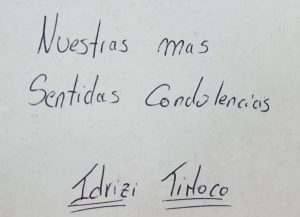 Nuestras mas
Sentidas Condolencias
Idrizi Tinoco